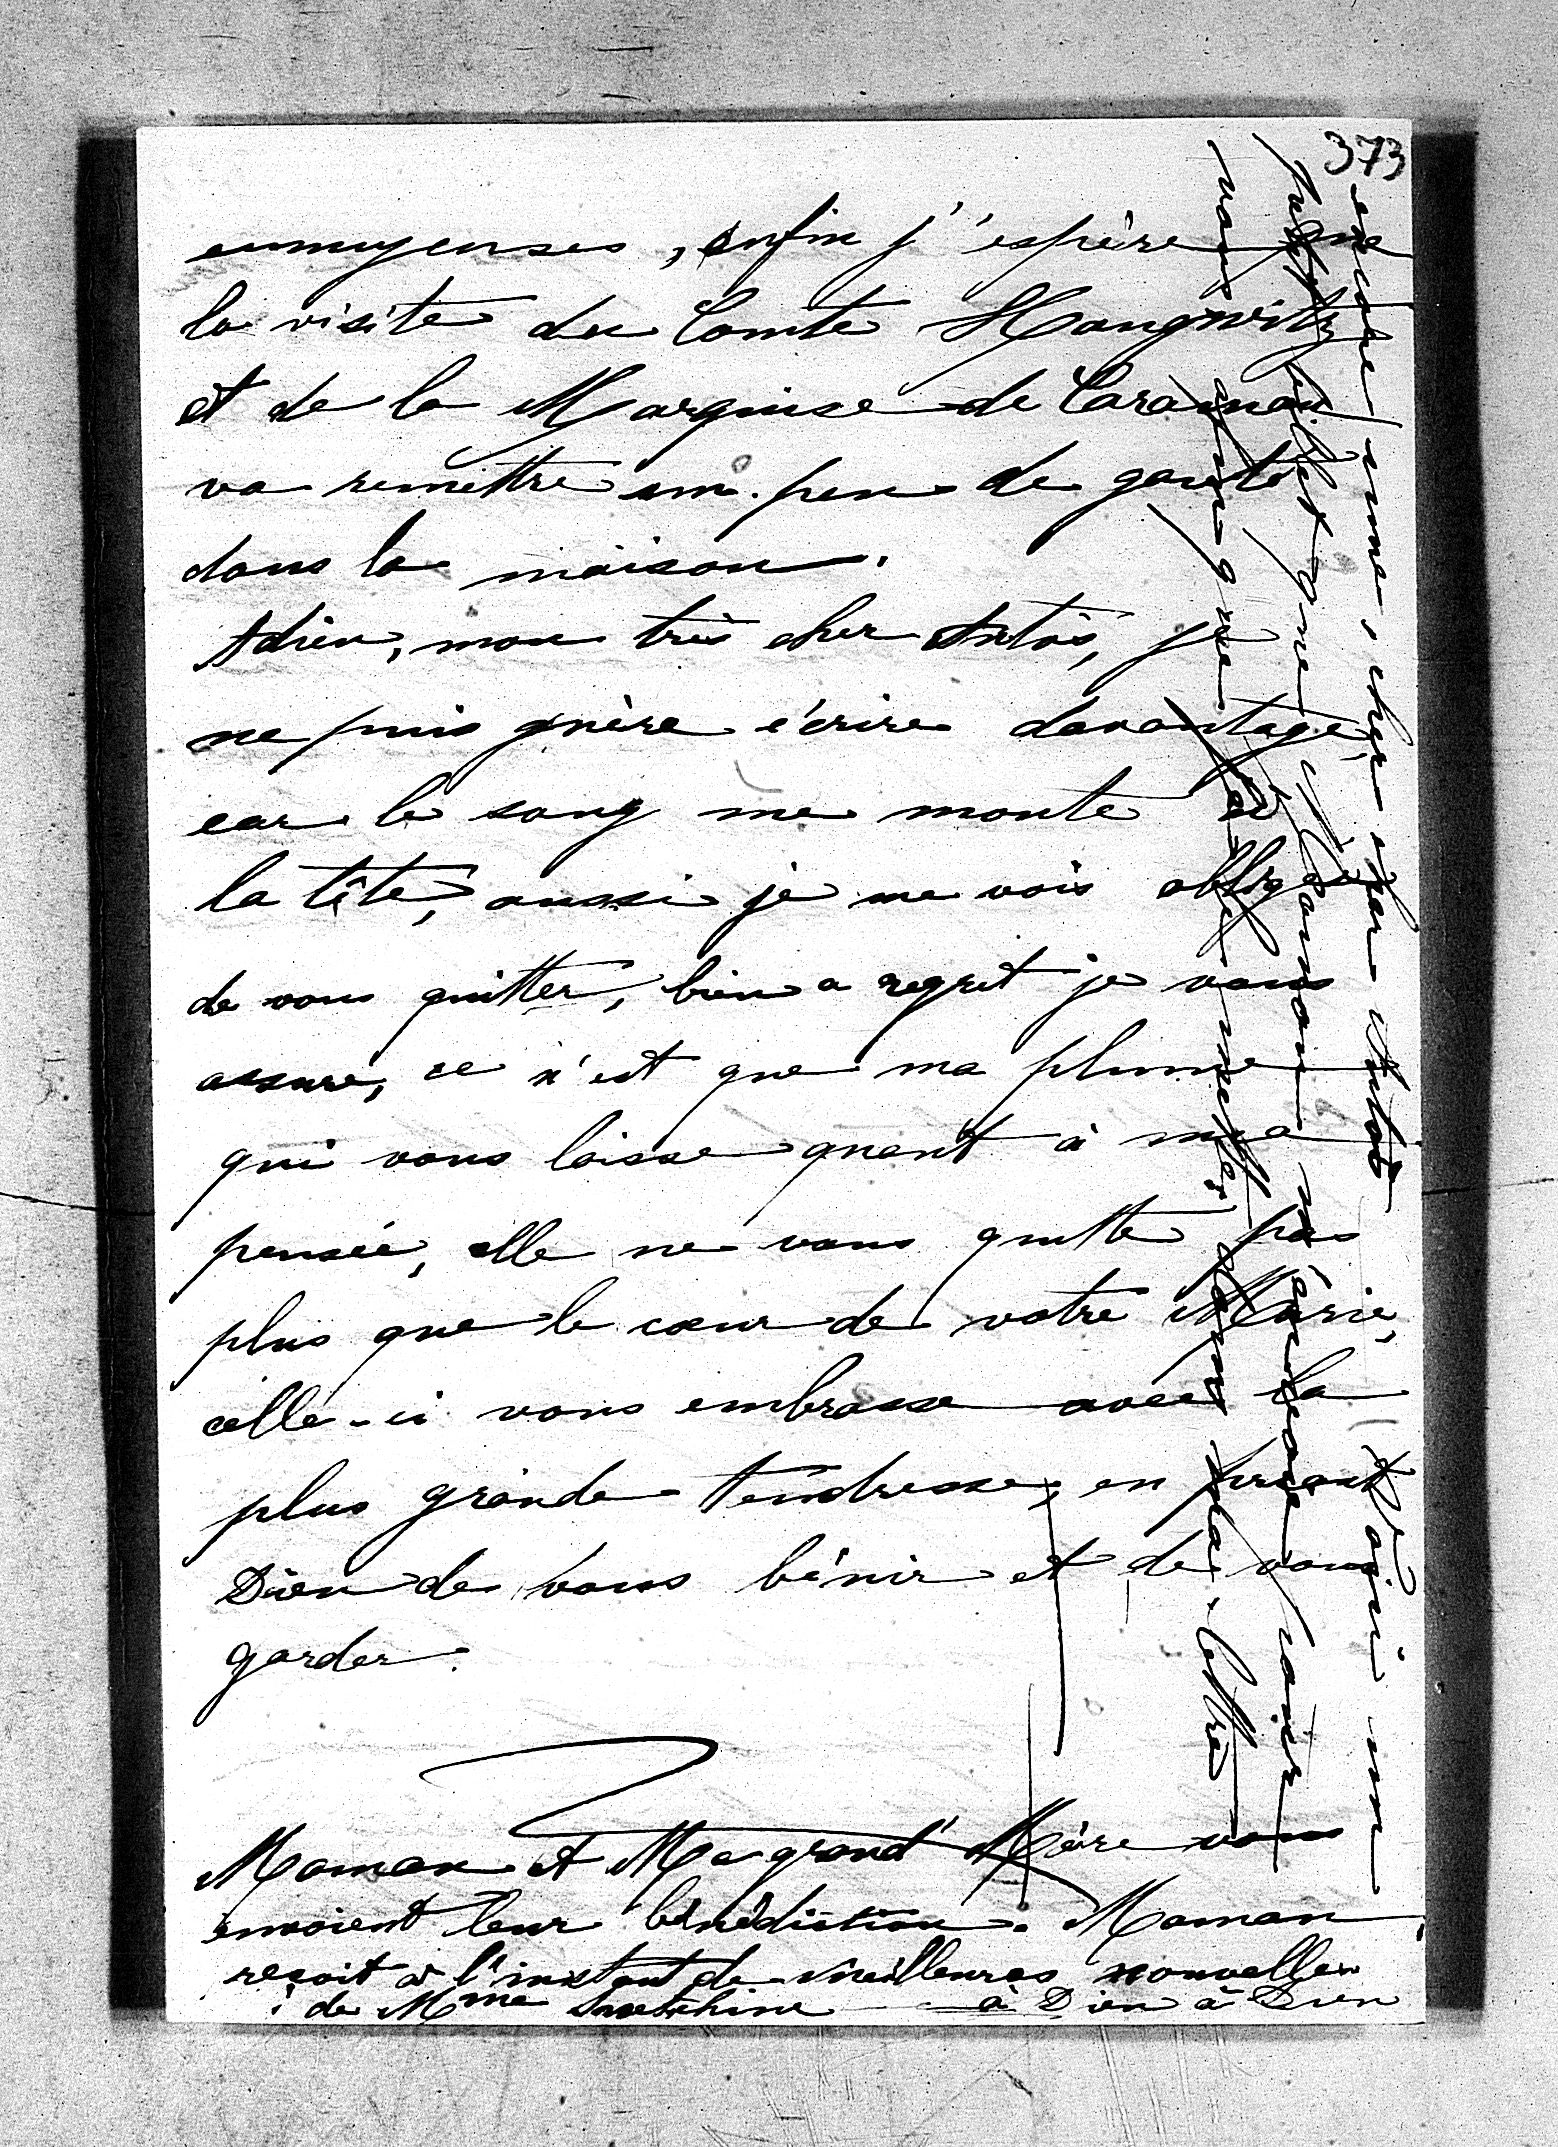 373
ennuyeuses, enfin j'espère que
la visite du Comte Haugwitz
et de la Marquise de Caraman
va remettre un peu de gaieté
dans la maison.
Adieu, mon très cher Artos, je
ne puis guère écrire davantage,
car le sang me monte à
la tête, aussi je me vois obligée
de vous quitter, bien a regret je vous
assure, ce n'est que ma plume
qui vous laisse quant à ma
pensée, elle ne vous quitte pas
plus que le cœur de votre Marie,
celle-ci vous embrasse avec la
plus grande tendresse, en priant
Dieu de vous bénir et de vous
garder.
Maman et Ma grand' Mère vous
envoient leur bénédiction. Maman
reçoit à l'instant de meilleures nouvelles
de Mme Swetchine — à Dieu à Dieu
encore une, cher cher Artos voici un
petit billet que Jeannou
vous afin que je le mette dans ma lettre